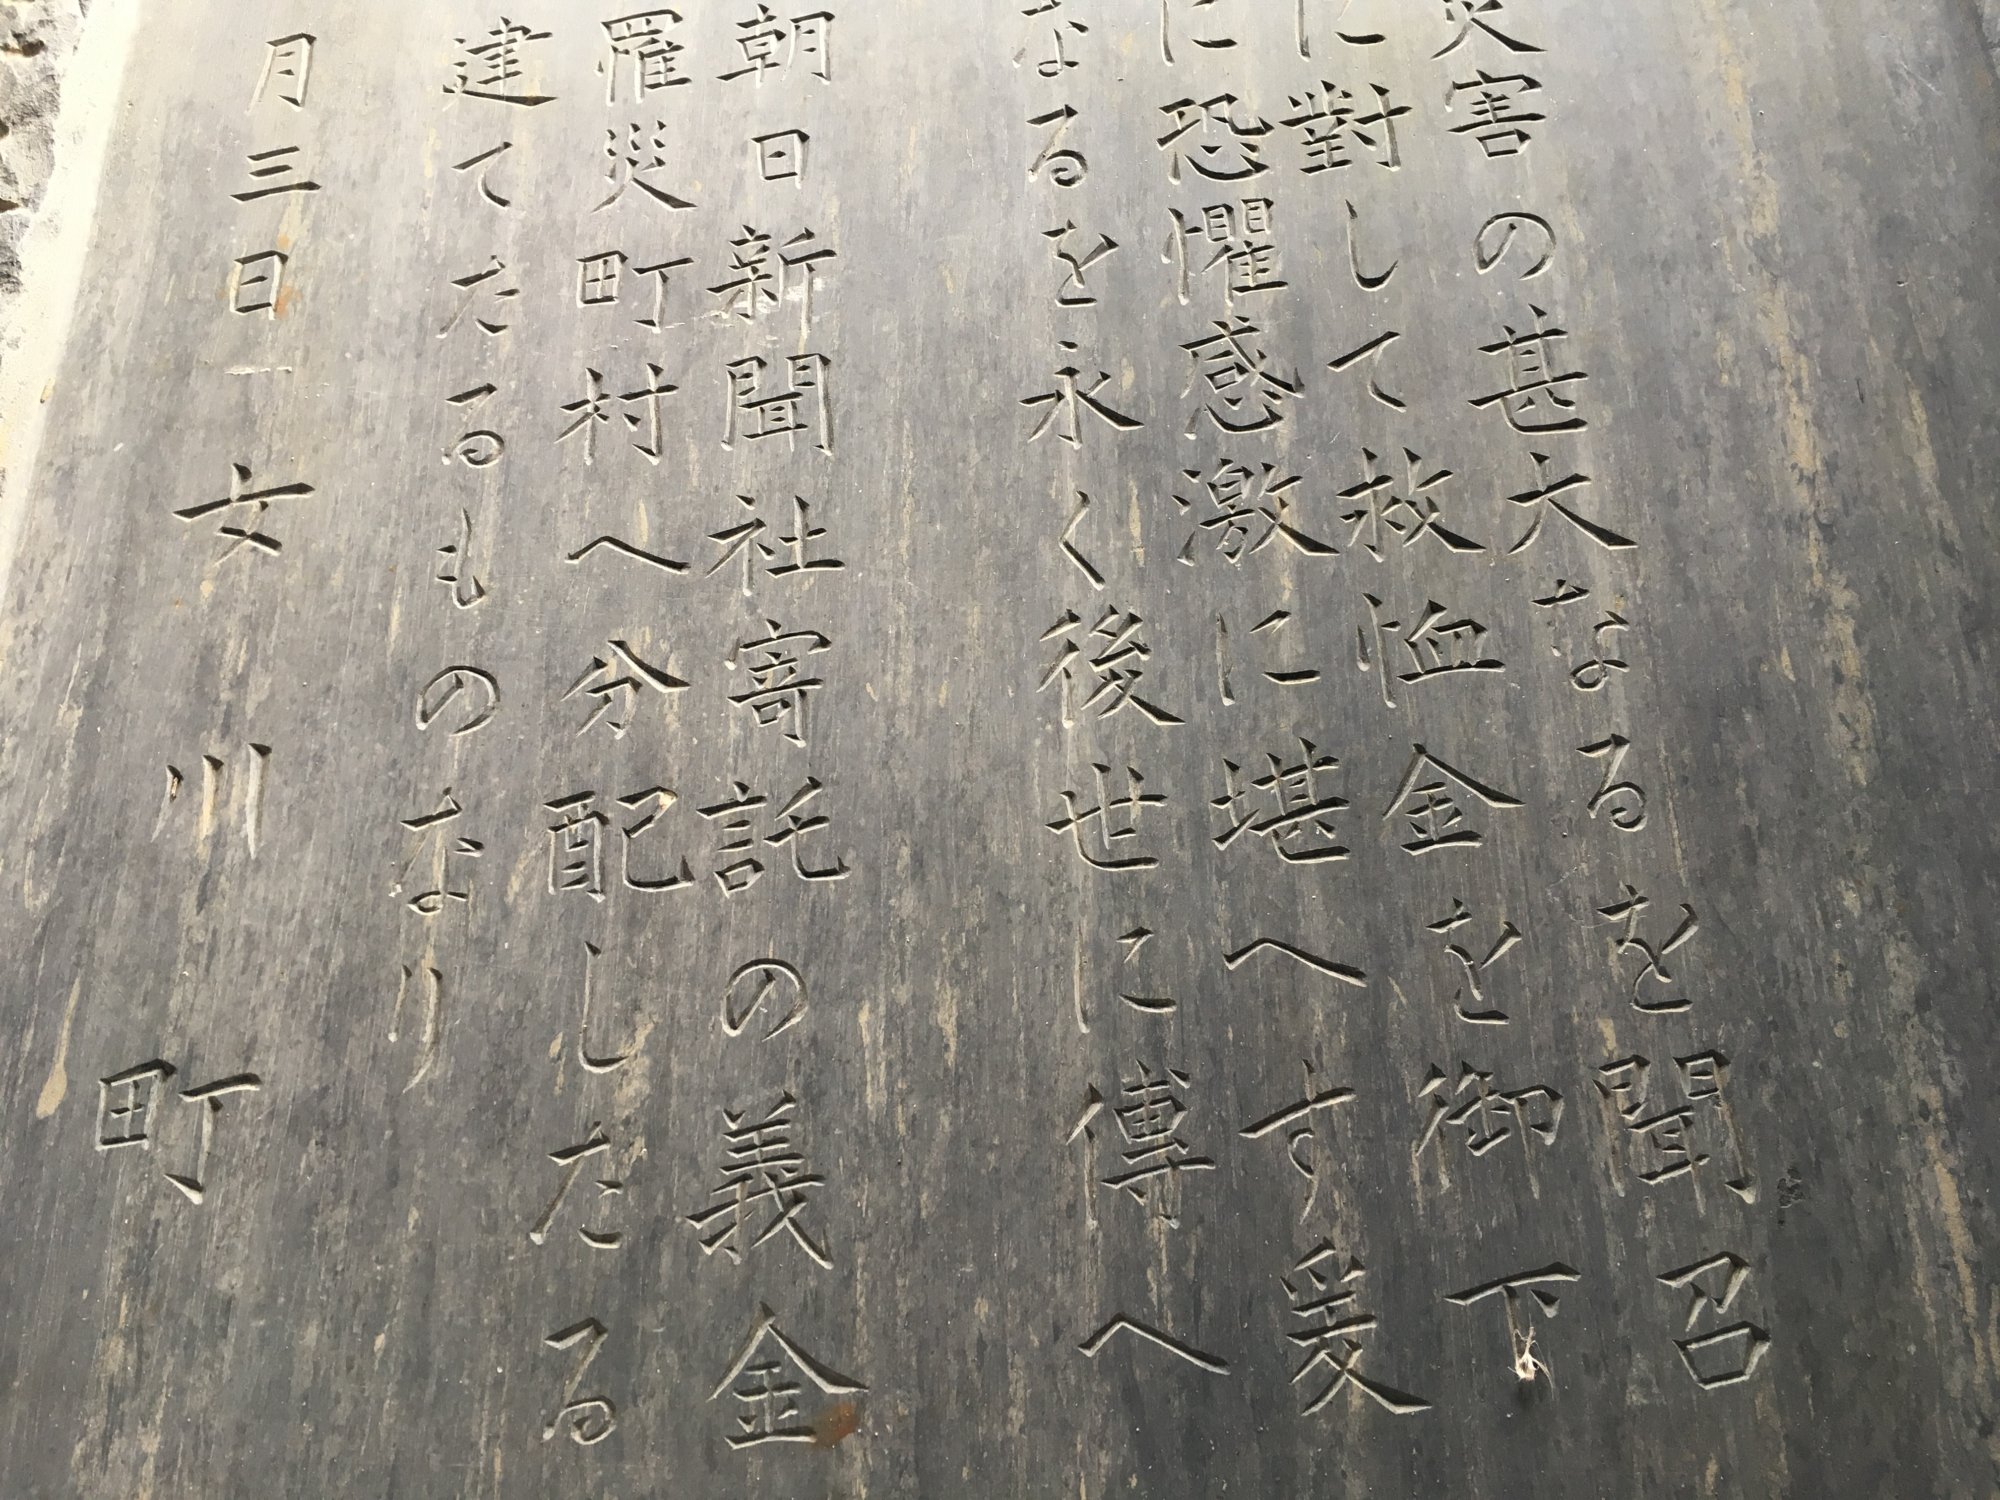 災害の甚大なるを聞召
に對して救恤金を御下
に恐懼感激に堪へす爰
なるを永く後世に傳へ
朝日新聞社寄託の義金
罹災町村へ分配したる
建てたるものなり
月三日 女川町